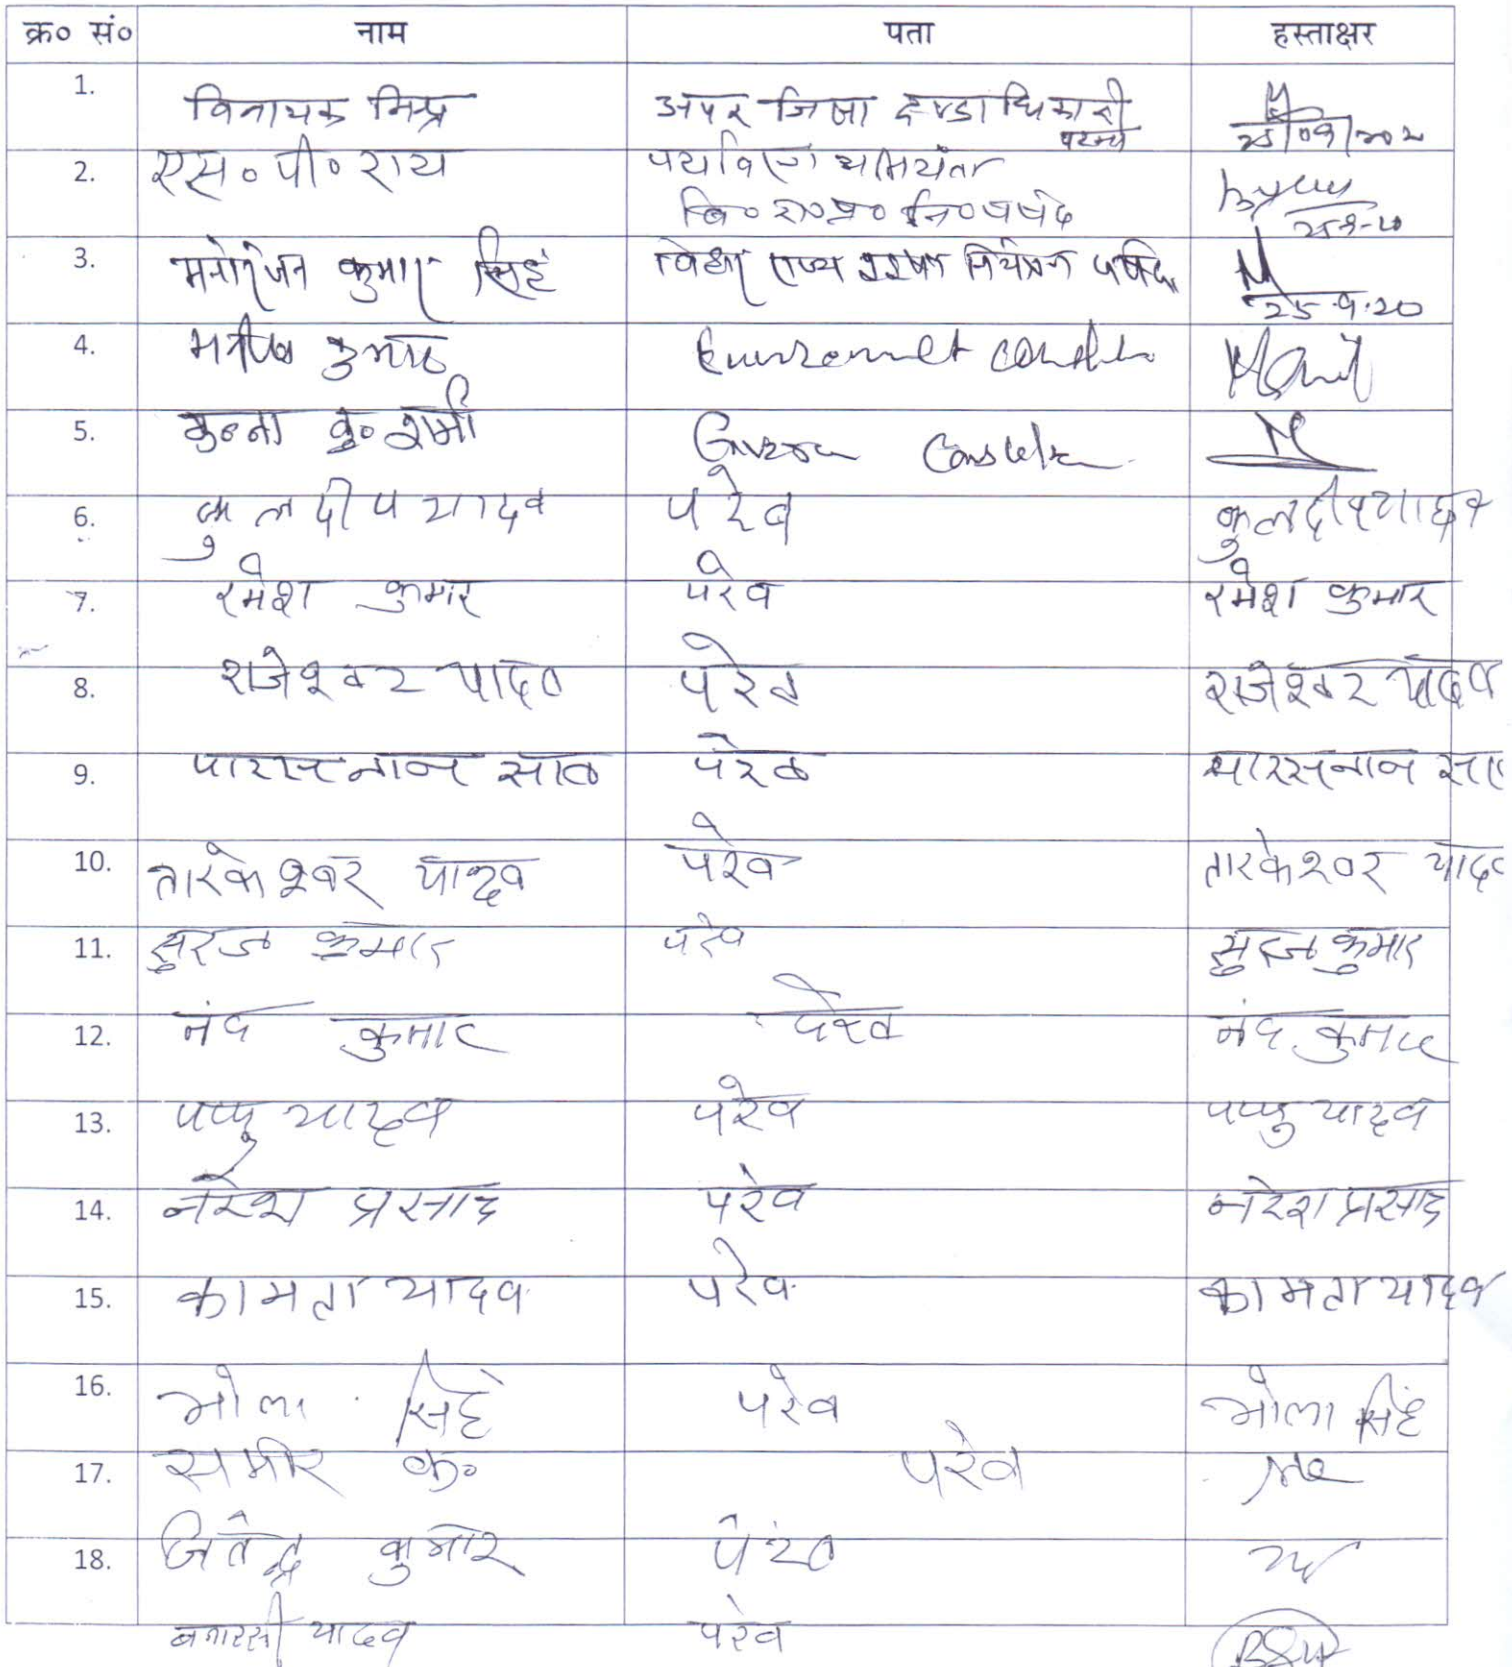 क्र० सं० नाम पता हस्ताक्षर
1. विनायक मिश्र अपर जिला दण्डाधिकारी
पटना 25/09/202
2. एस० पी० राय पर्यावरण अभियंता
बि० रा० प्र० नि० पर्षद 25-9-20
3. मनोरंजन कुमार सिंह बिहार राज्य प्रदूषण नियंत्रण पर्षद
25.9.20
4. मनीष कुमार
5. मुन्ना कु० शर्मा
6. कुलदीप यादव परेव कुलदीप यादव
7. रमेश कुमार परेव रमेश कुमार
8. राजेश्वर यादव परेव राजेश्वर यादव
9. परेव
10. तारकेश्वर यादव परेव तारकेश्वर यादव
11. सुरज कुमार परेव सुरज कुमार
12. नंद कुमार परेव नंद कुमार
13. पप्पु यादव परेव पप्पु यादव
14. नरेश प्रसाद परेव नरेश प्रसाद
15. कामता यादव परेव कामता यादव
16. भोला सिंह परेव भोला सिंह
17. समीर कु० परेव
18. जितेन्द्र कुमार परेव
बनारसी यादव परेव